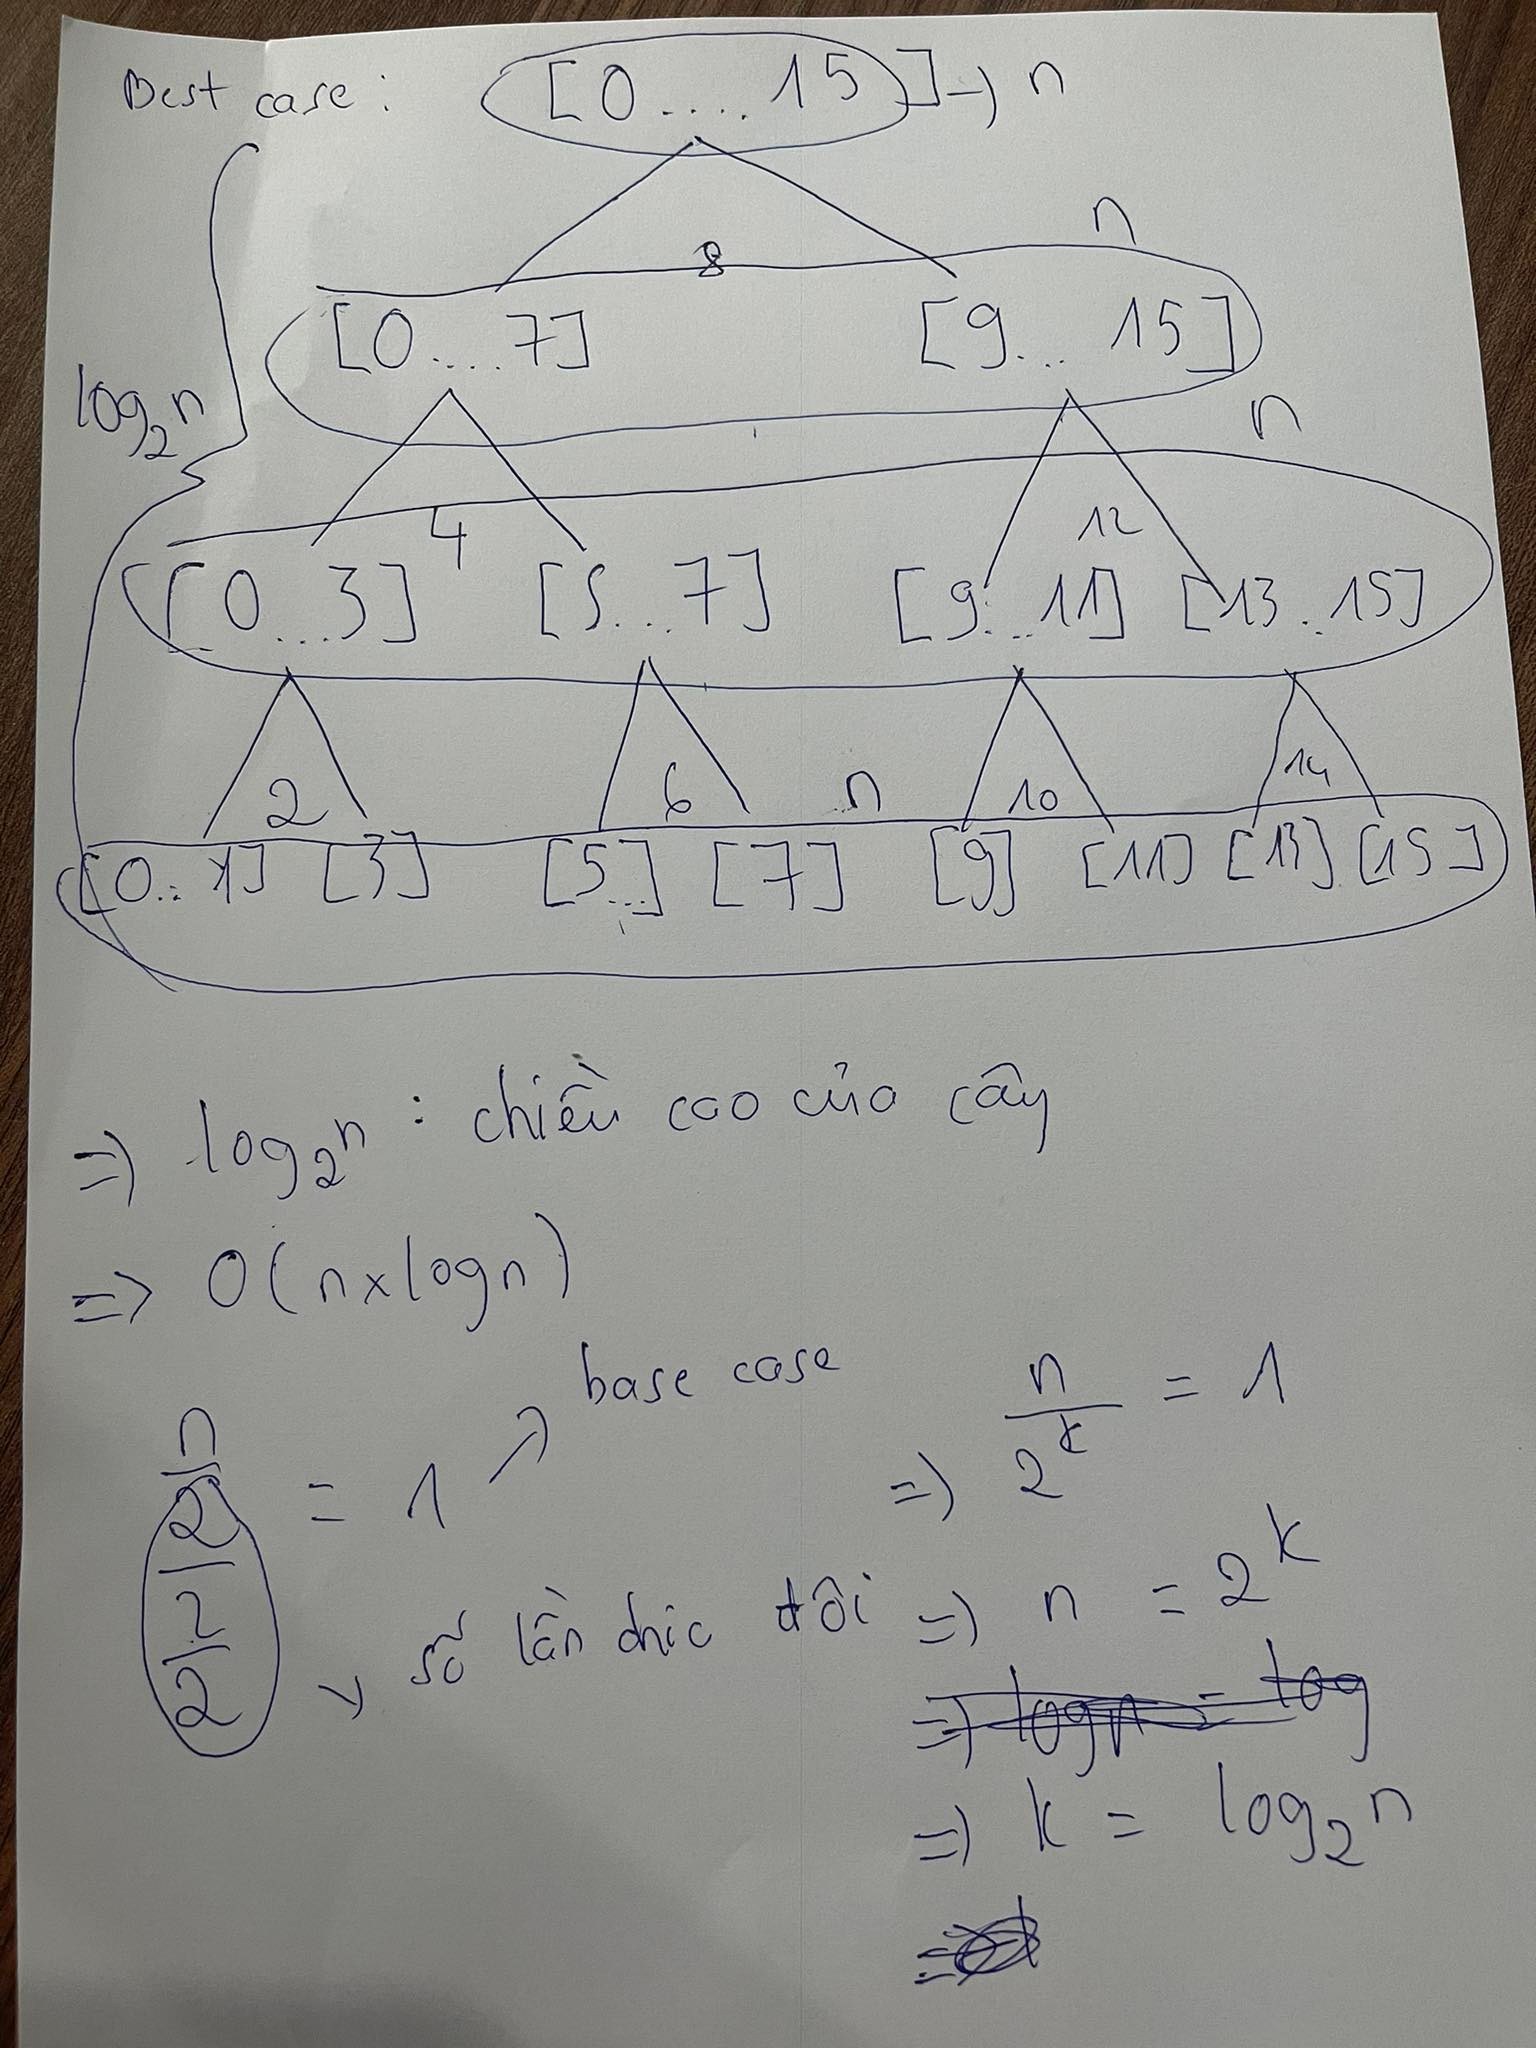 Best case : [0....15] -> n
n
8
[0....7] [9...15]
log₂n
n
4 12
[0...3] [5...7] [9...11] [13..15]
2 6 n 10 14
[0..1] [3] [5...] [7] [9] [11] [13] [15]
=> log₂n : chiều cao của cây
=> O(n x logn)
base case
n/2/2/2 = 1
số lần chia đôi
=> n/2^k = 1
=> n = 2^k
=> logn = log
=> k = log₂n